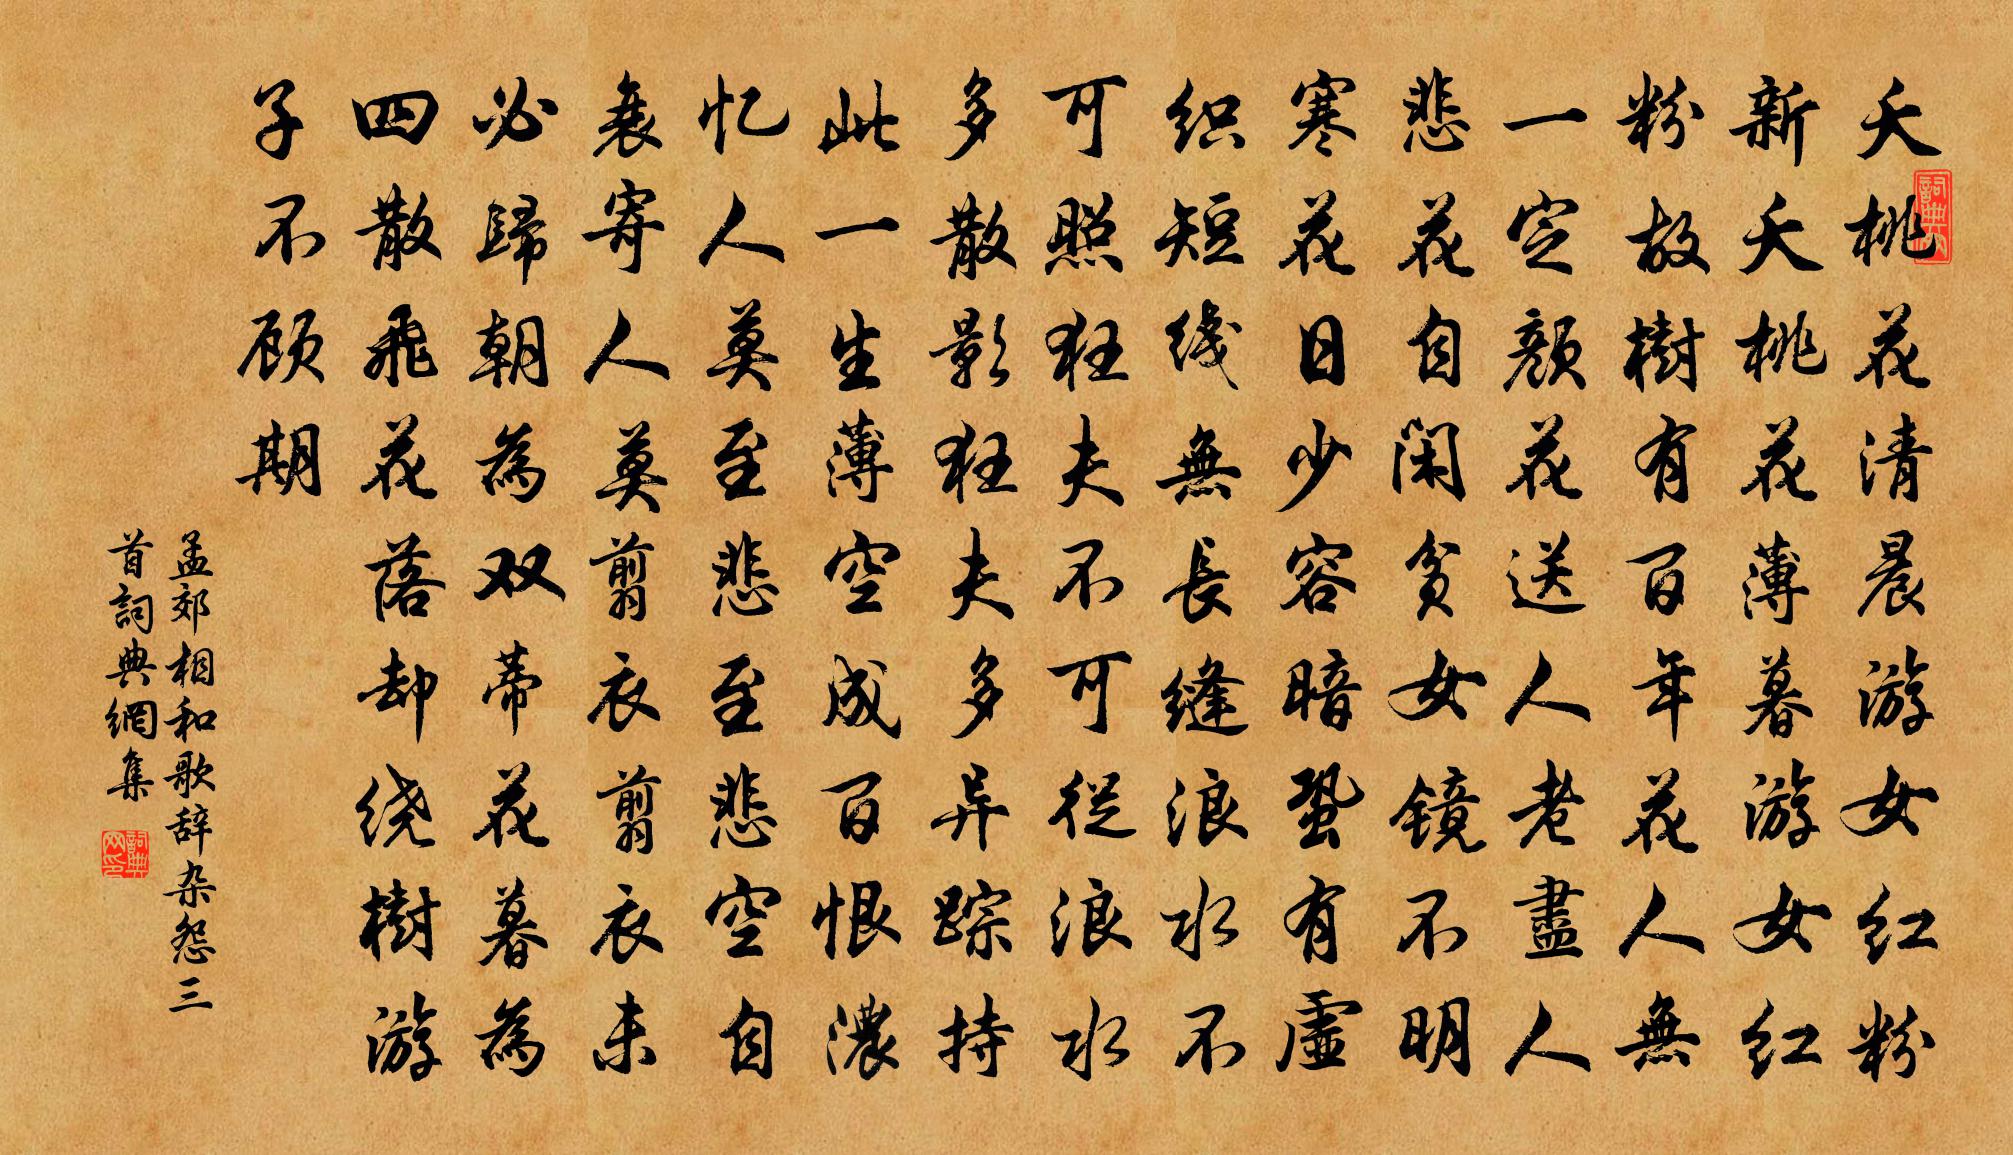 夭桃花清晨游女红粉
新夭桃花薄暮游女红
粉故樹有百年花人無
一定颜花送人老盡人
悲花自闲贫女镜不明
寒花日少容暗蛩有虚
织短线無長缝浪水不
可照狂夫不可從浪水
多散影狂夫多异踪持
此一生薄空成百恨濃
忆人莫至悲至悲空自
衰寄人莫剪衣剪衣未
必歸朝為双蒂花暮為
四散飛花落却绕樹游
子不顾期
孟郊相和歌辞杂怨三
首詞典網集